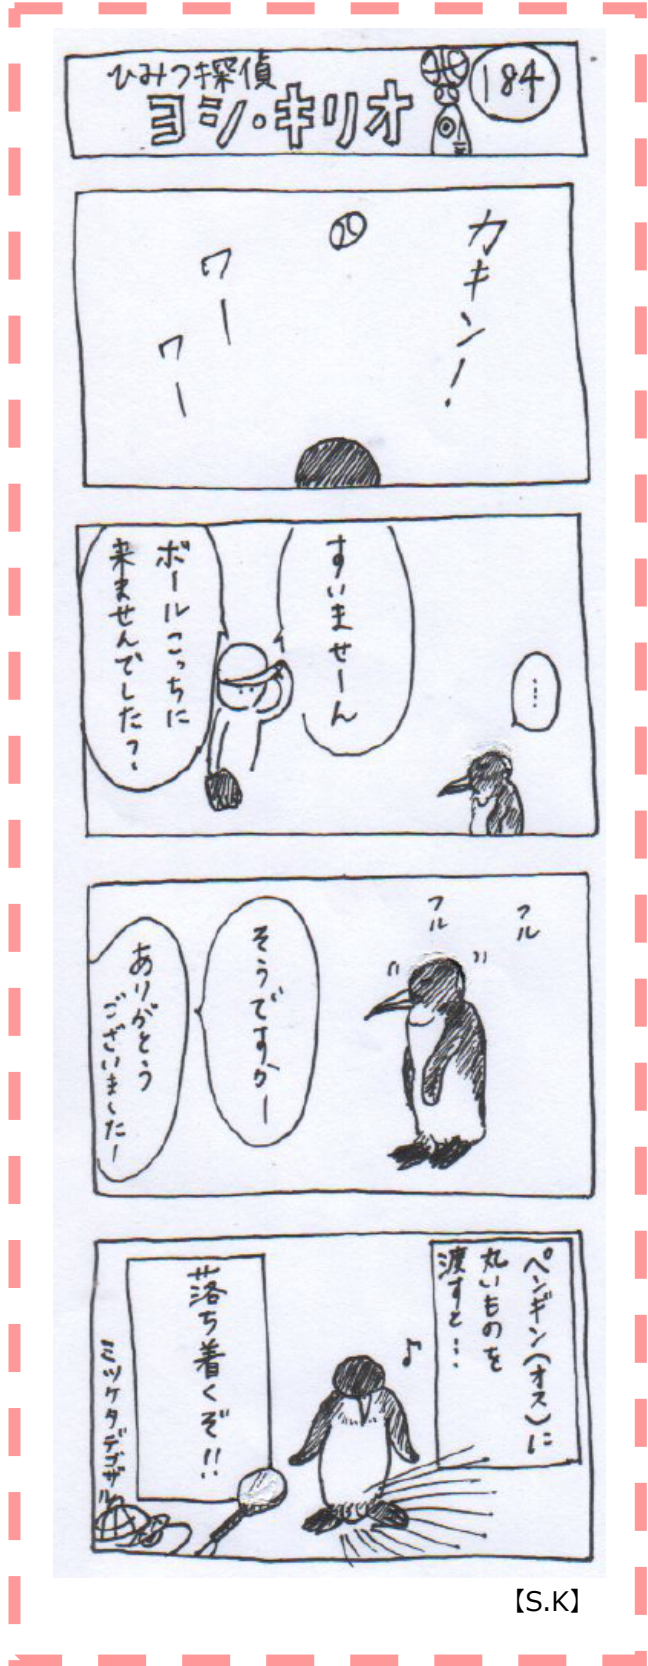 ひみつ探偵
ヨシ・キリオ
184
カキン!
ワー
ワー
…
すいませーん
ボールこっちに
来ませんでした?
フル
フル
そうですかー
ありがとう
ございましたー
ペンギン(オス)に
丸いものを
渡すと…
♪
落ち着くぞ!!
ミツケタデゴザル
【S.K】